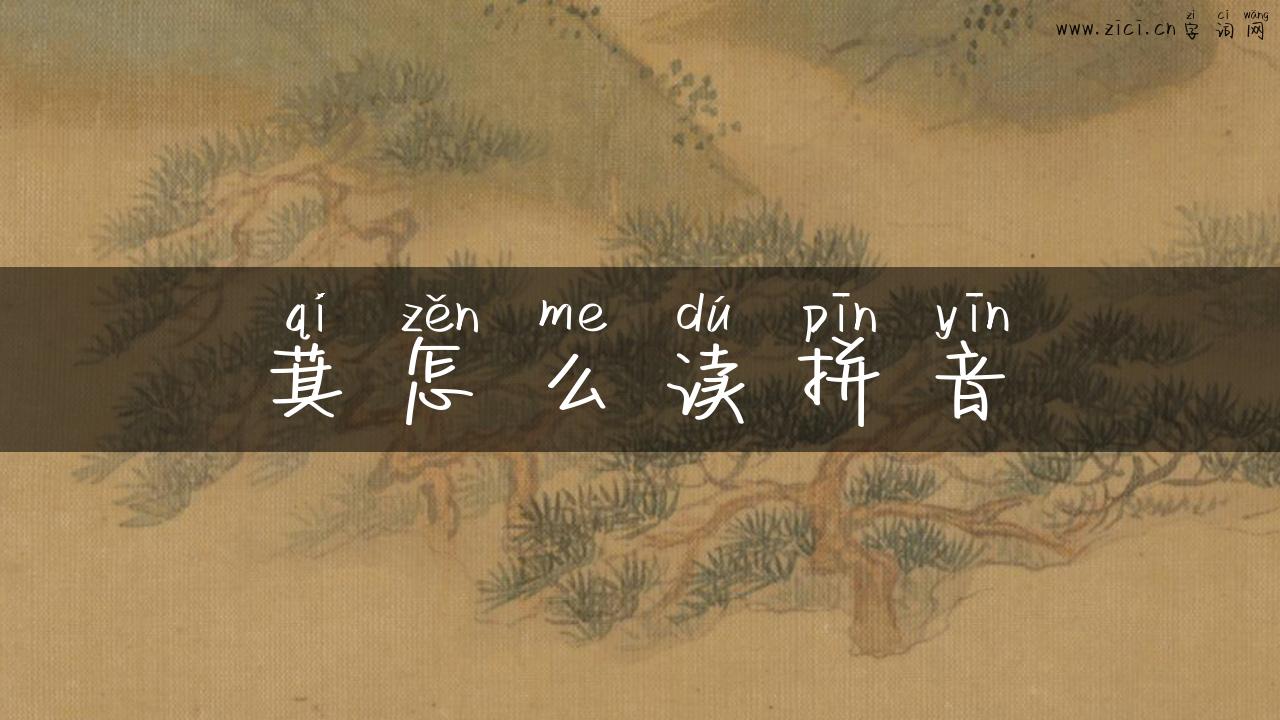 zì cí wǎng
www.zīcī.cn 字词网
qí zěn me dú pīn yīn
萁怎么读拼音